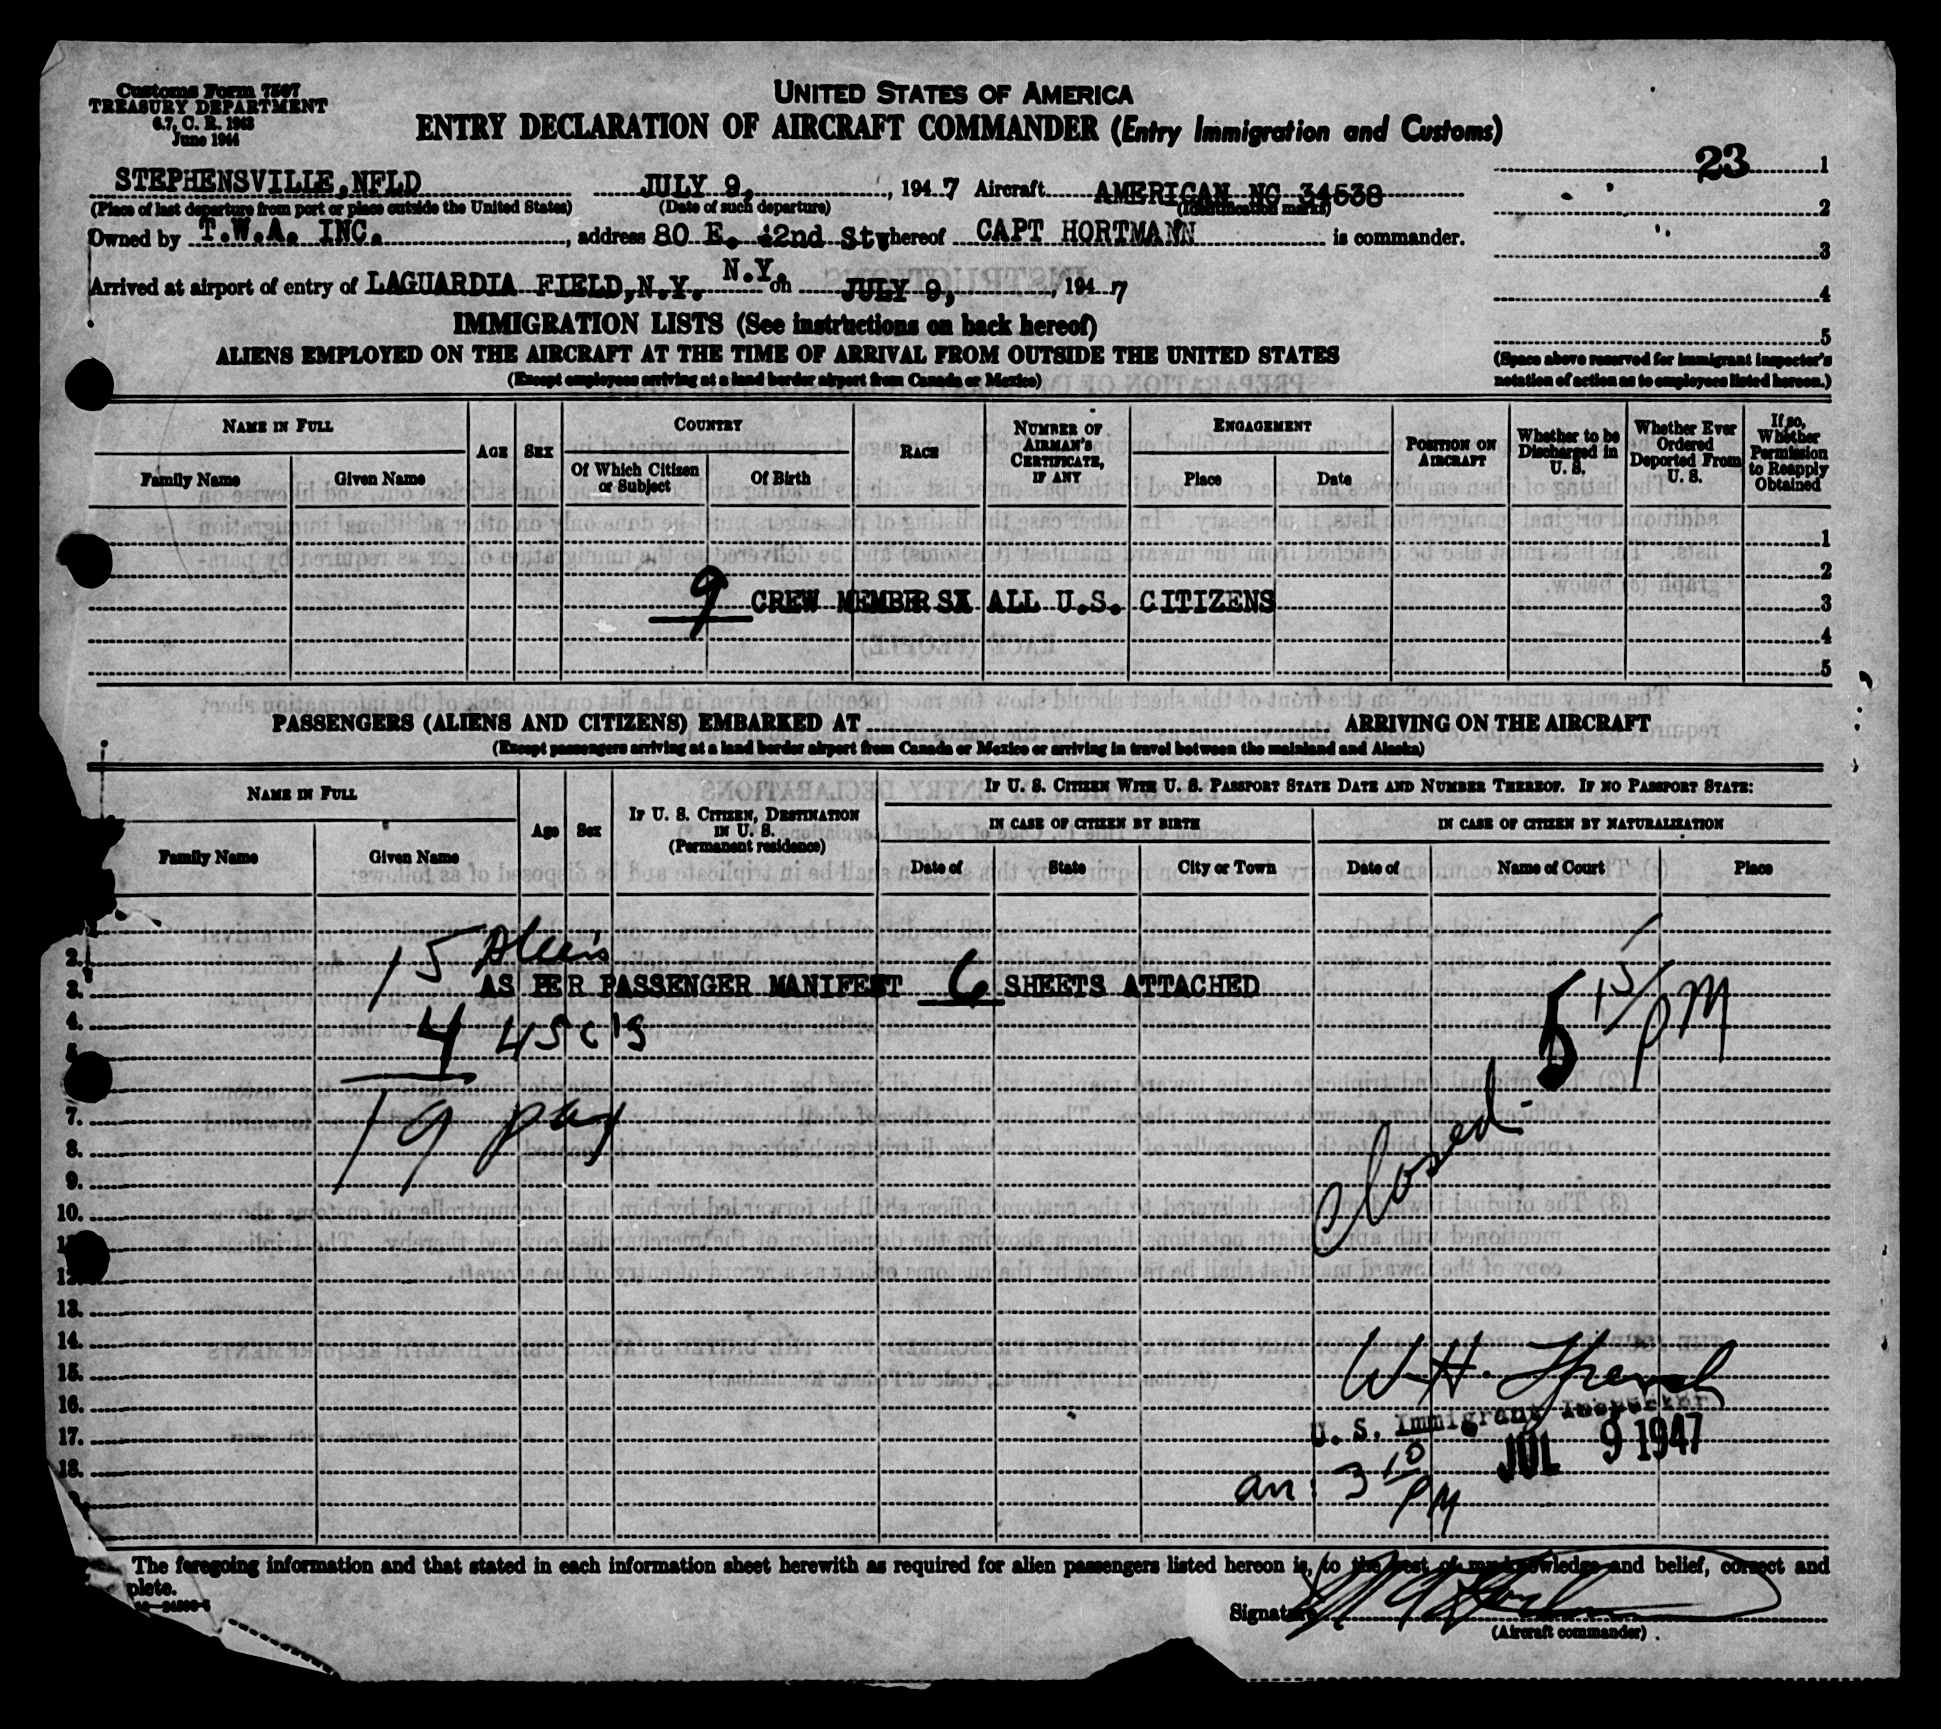 Customs Form 7507
TREASURY DEPARTMENT
6.7, C. R. 1943
June 1944
UNITED STATES OF AMERICA
ENTRY DECLARATION OF AIRCRAFT COMMANDER (Entry Immigration and Customs)
23 1
STEPHENSVILLE,NFLD JULY 9, , 1947 Aircraft AMERICAN NC 34538
(Place of last departure from port or place outside the United States) (Date of such departure) (Identification marks)
2
Owned by T.W.A. INC. , address 80 E. 42nd St, whereof CAPT HORTMANN is commander.
3
N.Y.
Arrived at airport of entry of LAGUARDIA FIELD,N.Y. on JULY 9, , 1947
4
IMMIGRATION LISTS (See instructions on back hereof)
5
ALIENS EMPLOYED ON THE AIRCRAFT AT THE TIME OF ARRIVAL FROM OUTSIDE THE UNITED STATES
(Space above reserved for immigrant inspector's
notation of action as to employees listed hereon.)
(Except employees arriving at a land border airport from Canada or Mexico)
NAME IN FULL AGE SEX COUNTRY RACE NUMBER OF AIRMAN'S CERTIFICATE, IF ANY ENGAGEMENT POSITION ON AIRCRAFT Whether to be Discharged in U. S. Whether Ever Ordered Deported From U. S. If so, Whether Permission to Reapply Obtained
Family Name Given Name Of Which Citizen or Subject Of Birth Place Date
1
2
9 CREW MEMBERSX ALL U.S. CITIZENS 3
4
5
PASSENGERS (ALIENS AND CITIZENS) EMBARKED AT ARRIVING ON THE AIRCRAFT
(Except passengers arriving at a land border airport from Canada or Mexico or arriving in travel between the mainland and Alaska)
NAME IN FULL Age Sex IF U. S. CITIZEN, DESTINATION IN U. S. (Permanent residence) IF U. S. CITIZEN WITH U. S. PASSPORT STATE DATE AND NUMBER THEREOF. IF NO PASSPORT STATE:
IN CASE OF CITIZEN BY BIRTH IN CASE OF CITIZEN BY NATURALIZATION
Family Name Given Name Date of State City or Town Date of Name of Court Place
2. 15 Aliens
3. AS PER PASSENGER MANIFEST 6 SHEETS ATTACHED
4. 4 USC'S
5 15/PM
5.
7. 19 pax
closed
8.
9.
10.
11.
12.
13.
14.
15. W. H.
16.
U. S. Immigrant Inspector
17. JUL 9 1947
18.
arr: 3 10 PM
The foregoing information and that stated in each information sheet herewith as required for alien passengers listed hereon is, to the best of my knowledge and belief, correct and
plete.
Signature
(Aircraft commander)